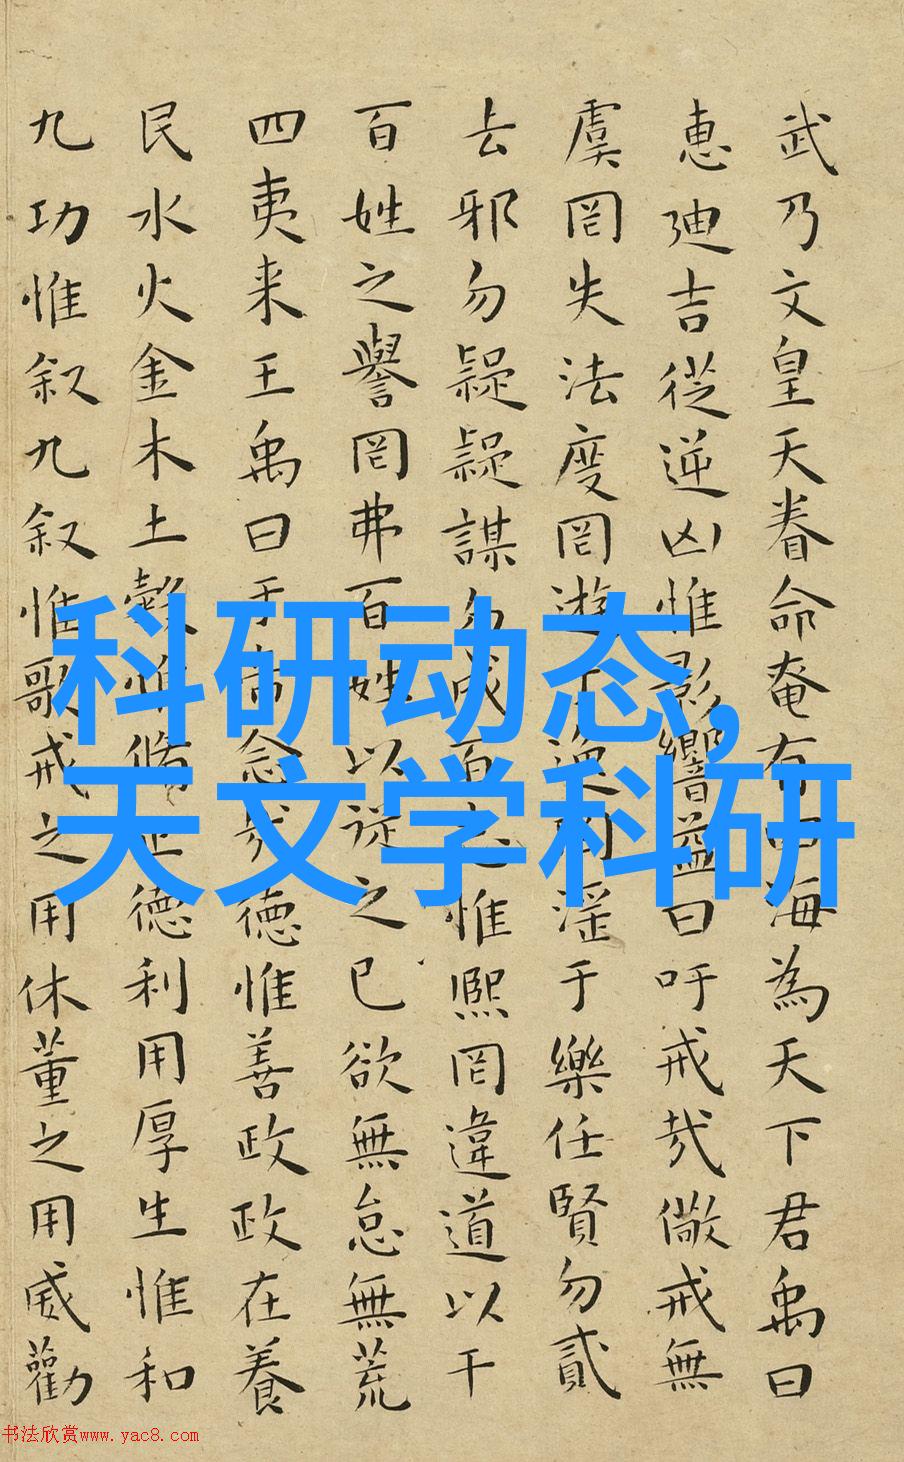 武乃文皇天眷命奄有四海為天下君禹曰
惠迪吉從逆凶惟影響益曰吁戒哉儆戒無
虞罔失法度罔遊于逸罔淫于樂任賢勿貳
去邪勿疑疑謀勿成百志惟熙罔違道以干
百姓之譽罔弗百姓以從之已欲無怠無荒
四夷来王禹曰于帝念哉德惟善政政在養
民水火金木土穀惟脩正德利用厚生惟和
九功惟叙九叙惟歌戒之用休董之用威勸
科研动态,
天文学科研
书法欣赏www.yac8.com